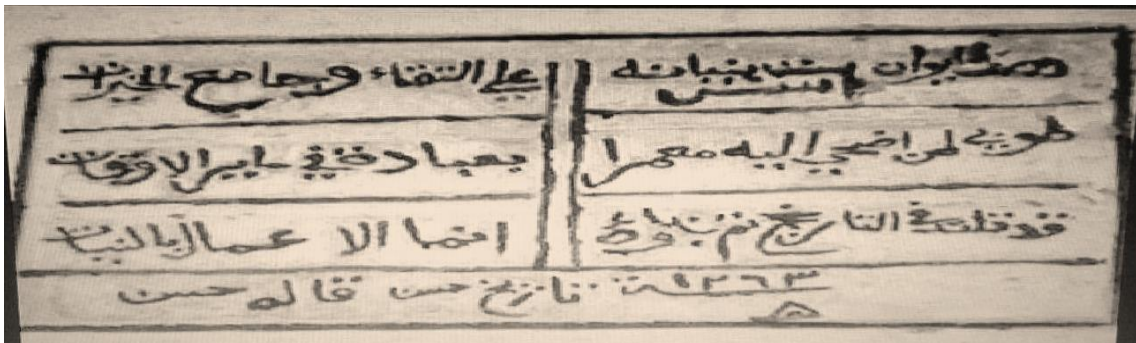 ومصلى وان اسس بنيانه على التقاء وجامع الخيرات
طوبى لمن اضحى اليه معمرا بعبادة في ساير الاوقات
قد قلت في التاريخ تم بناؤه انما الاعمال بالنيات
سنة ١٢٦٣ تاريخ حسن قاله حسن